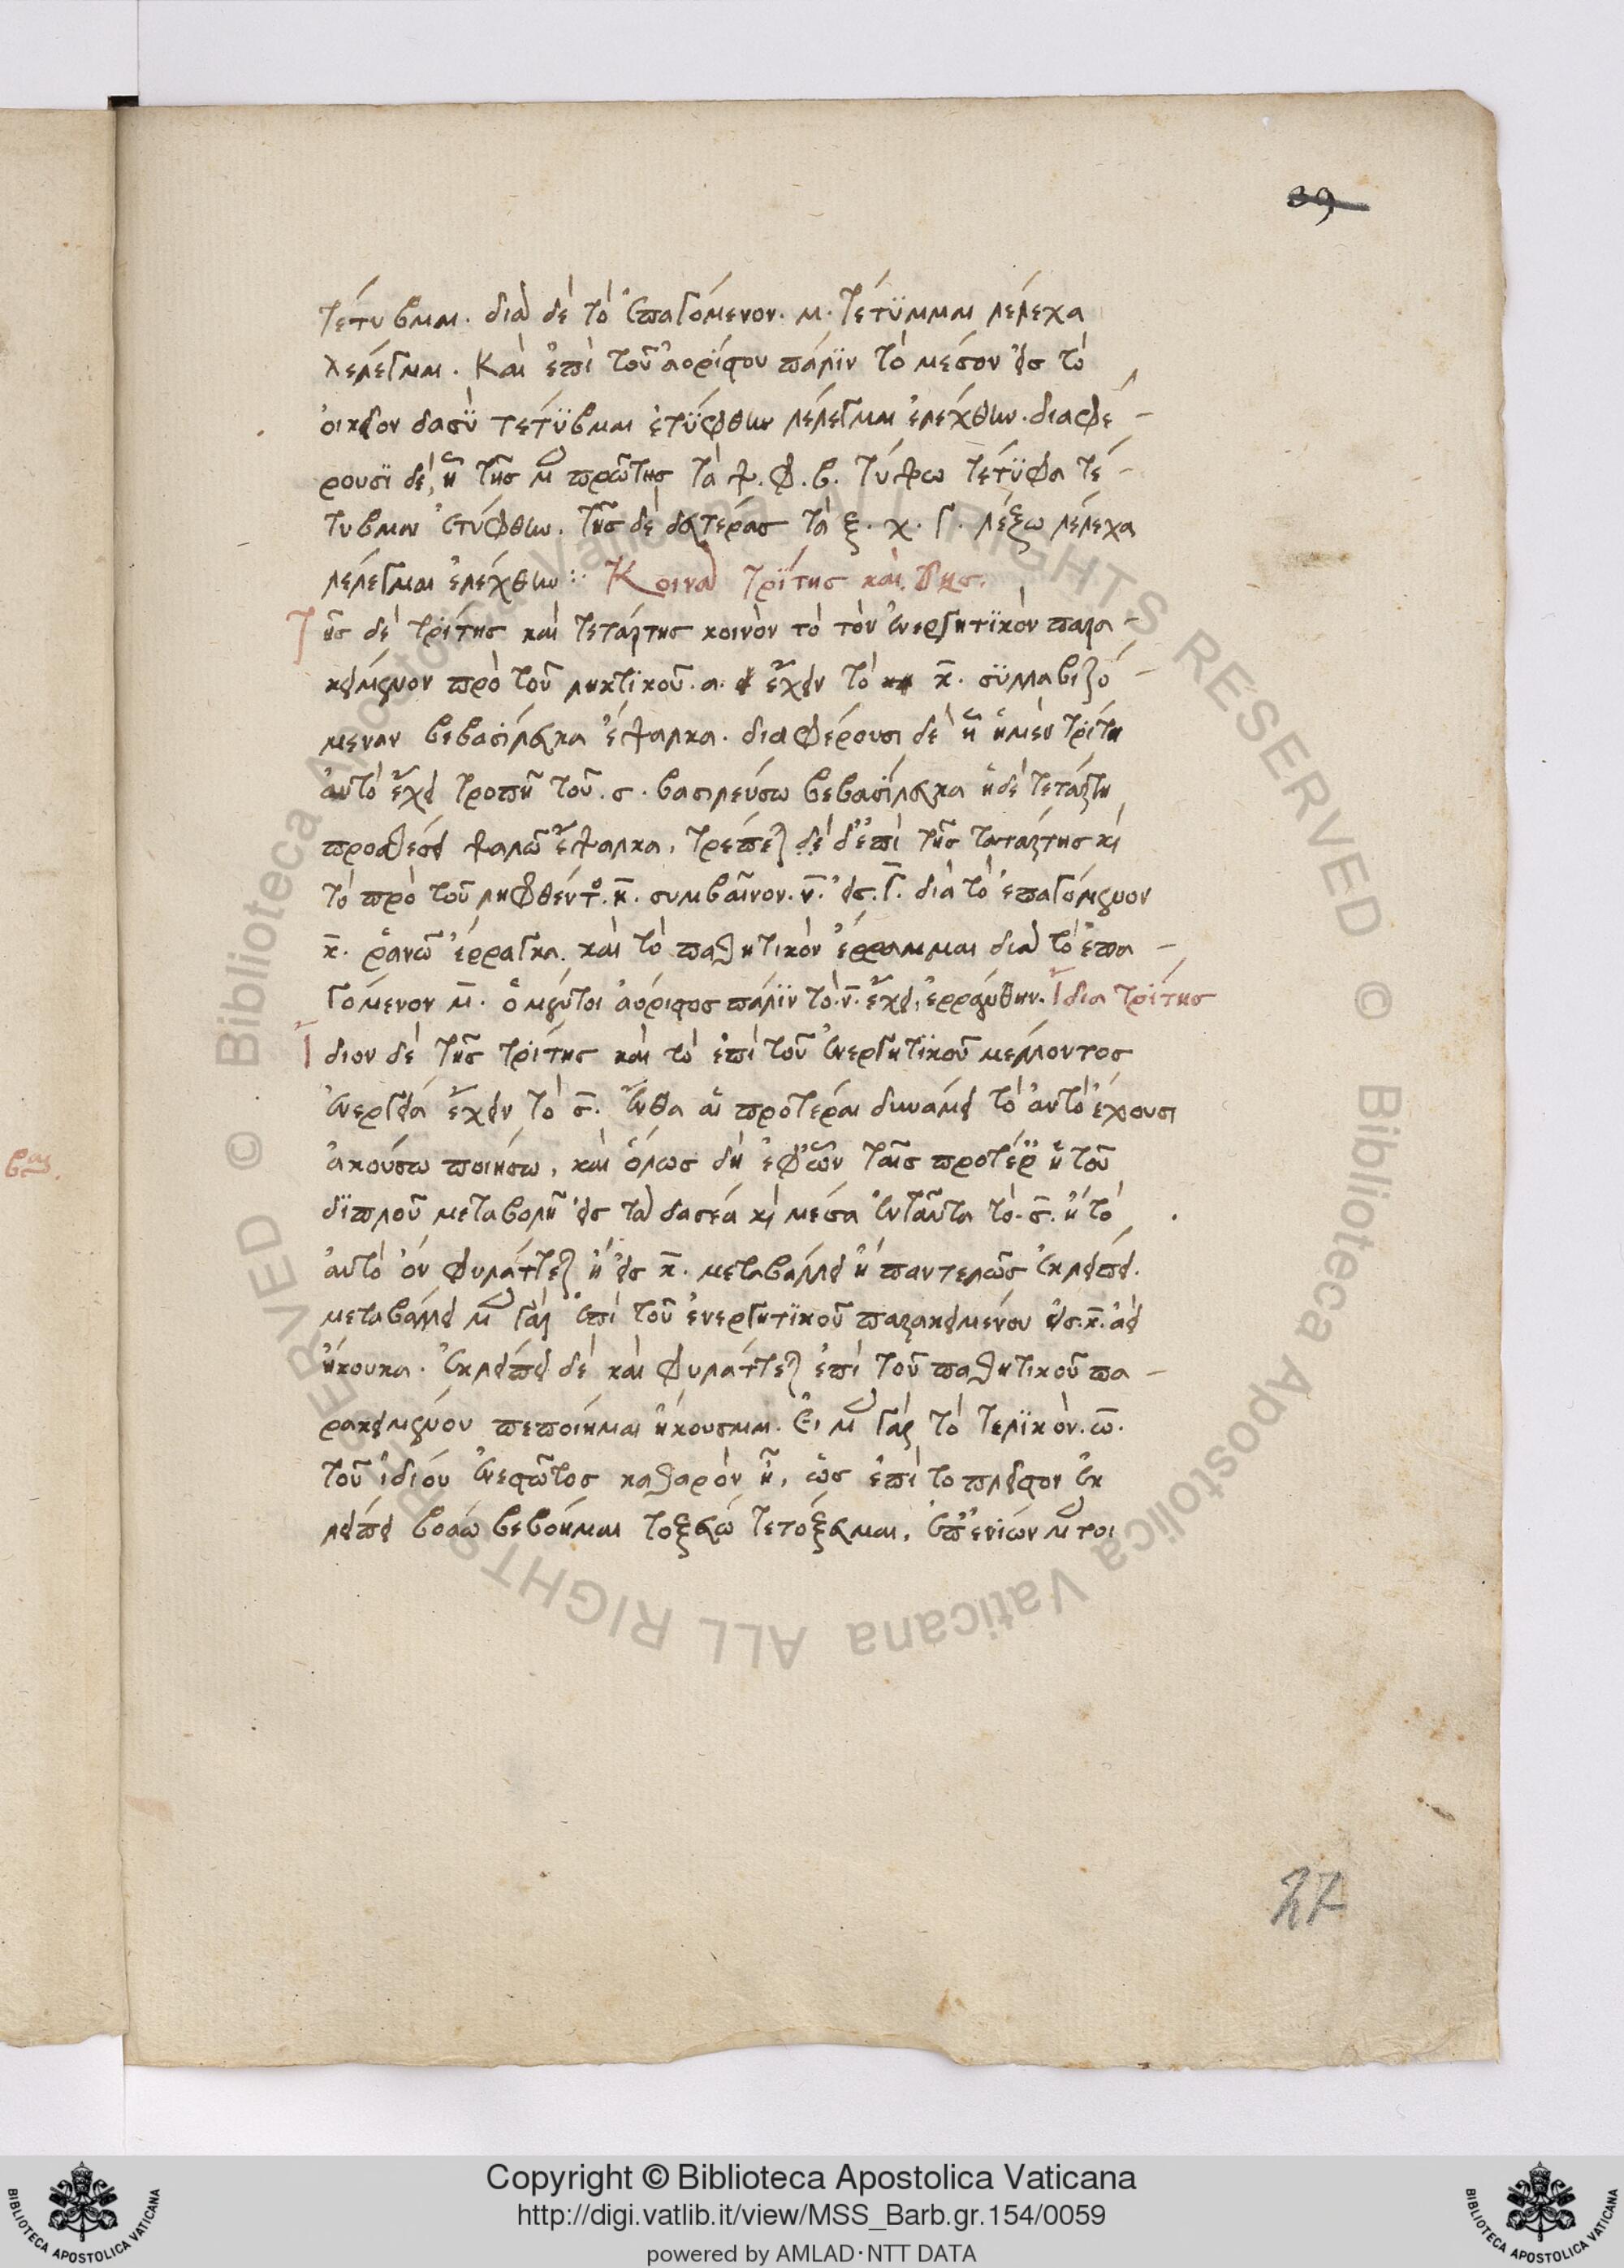 39
τέτυβμαι. διὰ δὲ τὸ ἐπαγόμενον. μ. τέτϋμμαι λέλεχα
λέλεγμαι. Καὶ ἐπὶ τοῦ ἀορίστου πάλϊν τὸ μέσον εἰς τὸ
οἰκεῖον δασὺ τέτϋβμαι ἐτΰφθην λέλεγμαι ἐλέχθην. διαφέ-
ρουσϊ δὲ, ἢ τῆς μὲν πρώτης τὰ ψ. φ. β. τύψω τέτϋφα τέ-
τυβμαι ἐτύφθην. τῆς δὲ δευτέρας τὰ ξ. χ. γ. λέξω λέλεχα
λέλεγμαι ἐλέχθην :· Κοινὰ τρίτης καὶ
Τῆς δὲ τρίτης καὶ τετάρτης κοινὸν τὸ τὸν ἐνεργητϊκὸν παρα-
κείμενον πρὸ τοῦ ληκτϊκοῦ. α. ἔχειν τὸ κ. σϋλλαβιζό-
μεναν βεβασίλευκα ἔψαλκα. διαφέρουσι δὲ ἢ ἡ μὲν τρίτη
αὐτὸ ἔχει τροπῆ τοῦ. σ. βασιλεύσω βεβασίλευκα ἡ δὲ τετάρτη
προσθέσει ψαλῶ ἔψαλκα. τρέπεται δὲ δ' ἐπὶ τῆς τατάρτης καὶ
τὸ πρὸ τοῦ ληφθέντος. κ. συμβαῖνον. ν. εἰς. γ. διὰ τὸ ἐπαγόμενον
κ. ῥανῶ ἔρραγκα. καὶ τὸ παθητικὸν ἔρραμμαι διὰ τὸ ἐπα-
γόμενον μ. ὁ μέντοι ἀόριστος πάλϊν τὸ. ν. ἔχει. ἐρράνθην. Ἴδια τρίτης
Ἴδιον δὲ τῆς τρίτης καὶ τὸ ἐπὶ τοῦ ἐνεργητϊκοῦ μέλλοντος
ἐνεργείᾳ ἔχειν τὸ σ. ἔνθα αἱ προτέραι δυνάμει τὸ αὐτὸ ἔχουσι
ἀκούσω ποιήσω, καὶ ὅλως δὴ ἐφ' ὧν ταῖς προτέρ ἡ τοῦ
δϊπλοῦ μεταβολὴ εἰς τὰ δασέα καὶ μέσα ἐνταῦτα τὸ. σ. ἢ τὸ
αὐτὸ ὂν φυλάττεται ἢ εἰς κ. μεταβάλλει ἢ παντελῶς ἐκλείπει.
μεταβάλλει μὲν γὰρ ἐπὶ τοῦ ἐνεργητϊκοῦ παρακειμένου εἰς. κ. ἀεὶ
ἤκουκα. ἐκλείπει δὲ καὶ φυλάττεται ἐπὶ τοῦ παθητικοῦ πα-
ρακειμένου πεποίημαι ἤκουσμαι. Εἰ μὲν γὰρ τὸ τελϊκὸν. ω.
τοῦ ἰδίου ἐνεστῶτος καθαρὸν ᾖ, ὡς ἐπὶ το πλεῖστον ἐκ
λείπει βοάω βεβόημαι τοξεύω τετόξευμαι. ἐπ' ἐνίων μέντοι
27
Copyright © Biblioteca Apostolica Vaticana
http://digi.vatlib.it/view/MSS_Barb.gr.154/0059
powered by AMLAD·NTT DATA